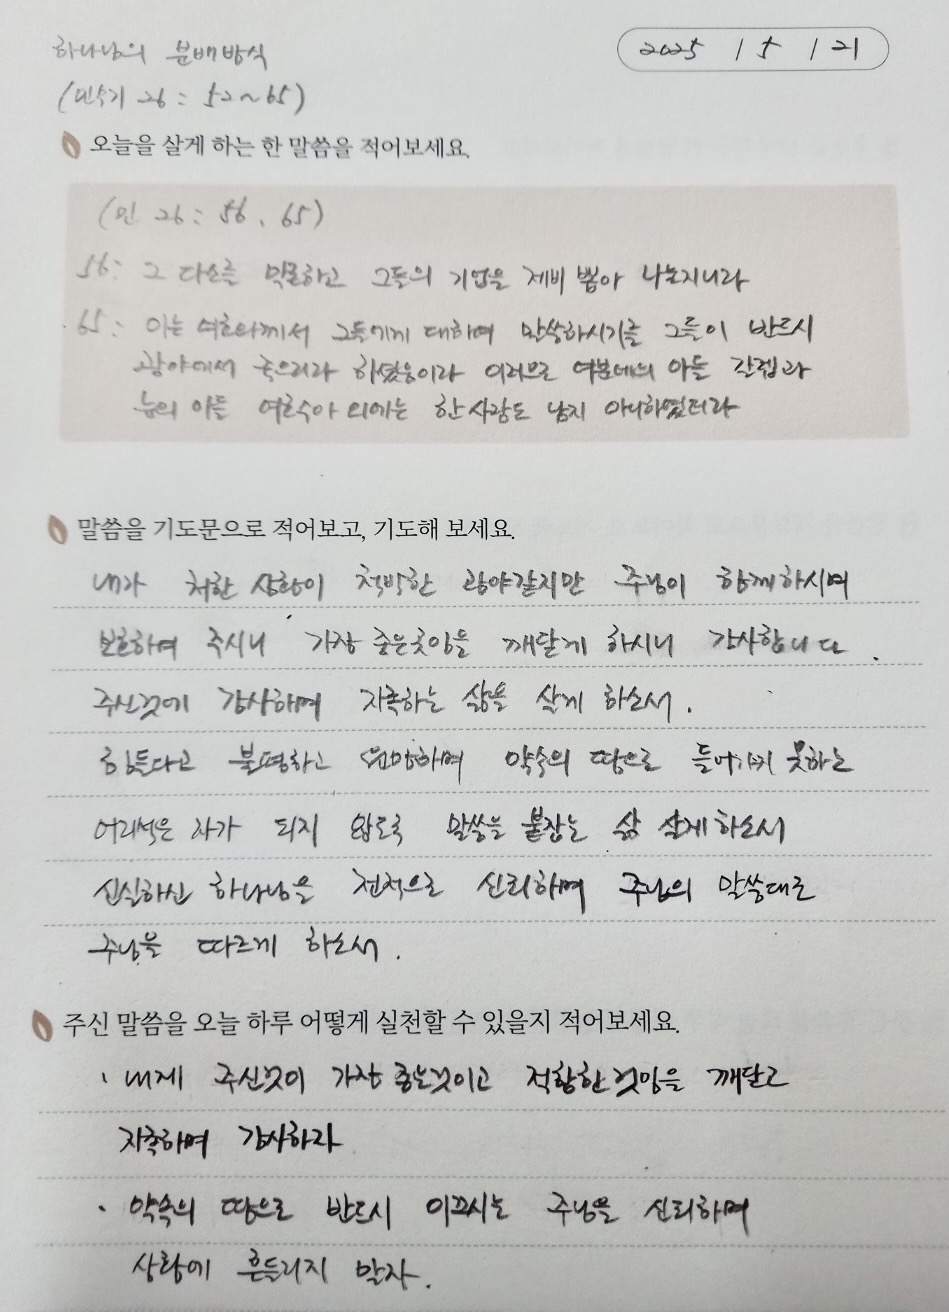 하나님의 분배방식
2025 / 5 / 21
(민수기 26 : 52~65)
오늘을 살게 하는 한 말씀을 적어보세요.
(민 26 : 56, 65)
56: 그 다소를 막론하고 그들의 기업을 제비 뽑아 나눌지니라
65: 이는 여호와께서 그들에게 대하여 말씀하시기를 그들이 반드시
광야에서 죽으리라 하셨음이라 이러므로 여분네의 아들 갈렙과
눈의 아들 여호수아 외에는 한 사람도 남지 아니하였더라
말씀을 기도문으로 적어보고, 기도해 보세요.
내가 처한 상황이 척박한 광야같지만 주님이 함께하시며
보호하여 주시니 가장 좋은곳임을 깨닫게 하시니 감사합니다.
주신것에 감사하며 자족하는 삶을 살게 하소서.
힘들다고 불평하고 원망하며 약속의 땅으로 들어가지 못하는
어리석은 자가 되지 않도록 말씀을 붙잡는 삶 살게하소서
신실하신 하나님을 전적으로 신뢰하며 주님의 말씀대로
주님을 따르게 하소서.
주신 말씀을 오늘 하루 어떻게 실천할 수 있을지 적어보세요.
· 내게 주신것이 가장 좋은것이고 적합한것임을 깨닫고
자족하며 감사하라
· 약속의 땅으로 반드시 이끄시는 주님을 신뢰하며
상황에 흔들리지 말자.